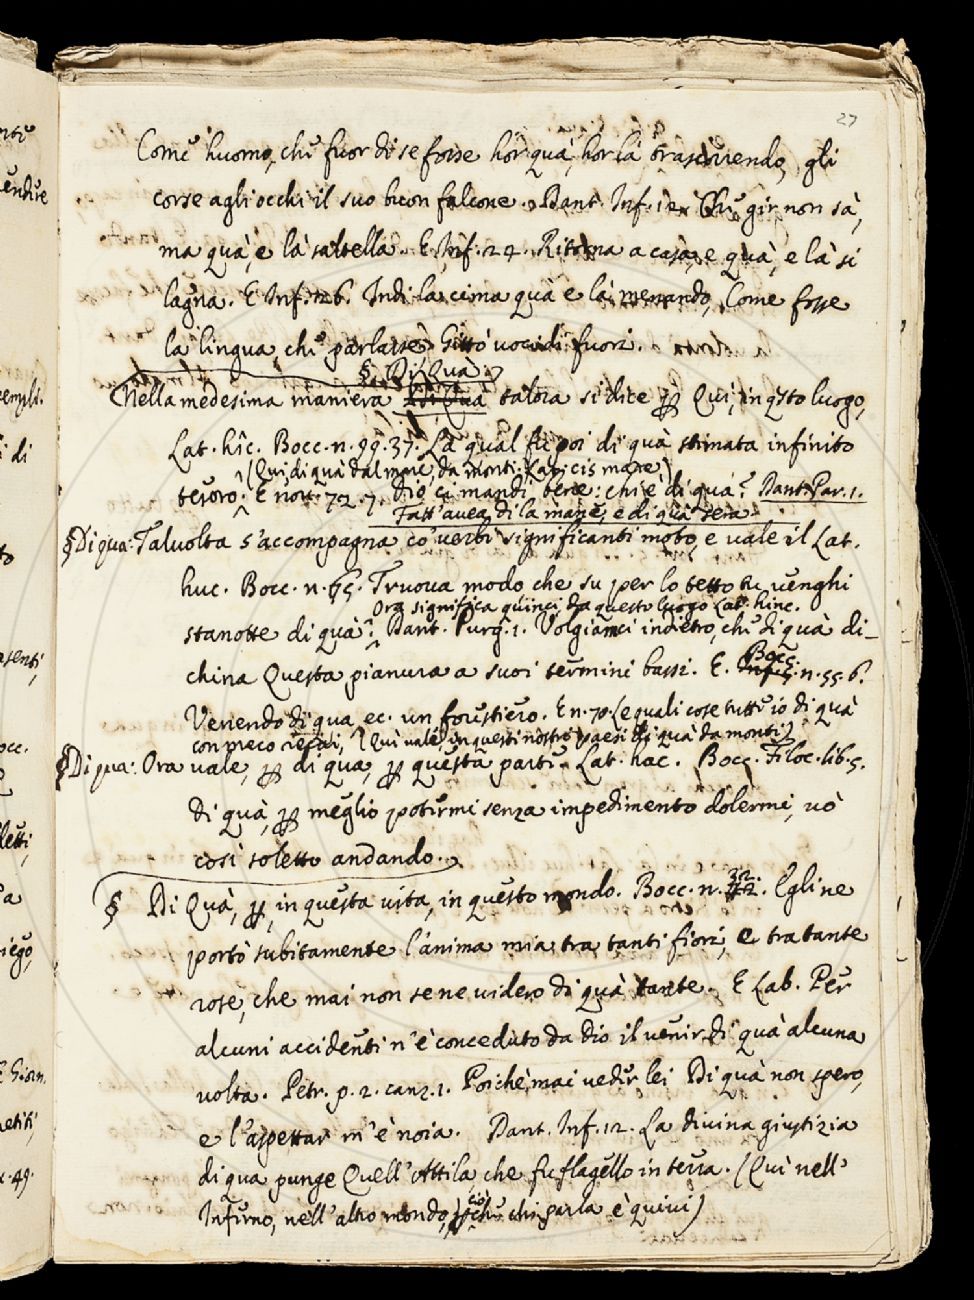 27
Come huomo, che fuor di se fosse hor quà, hor là trascorrendo, gli
corse agli occhi il suo buon falcone. Dant. Inf. Chi gir non sà,
ma quà, e là saltella. E Inf. 24. Ritorna a casa, e quà, e là si
lagna. E Inf. 26. Indi la cima quà e là menando, Come fosse
la lingua, che parlasse, Gittò voce di fuori.
§. Di Quà.
Nella medesima maniera Di Quà talora si dice ꝑ Qui, in qsto luogo,
Lat. hîc. Bocc. n. 99. 37. La qual fu poi di quà stimata infinito
(Qui, di quà dal mare, da monti. Lat. cis mare)
tesoro. E nov. 72. 7. Dio ci mandi bene: chi è di quà? Dant. Par. 1.
Fatt' avea di la mane, e di quà sera
§ Di qua: Talvolta s'accompagna co' verbi significanti moto, e vale il Lat.
huc. Bocc. n. 65. Truova modo che su per lo tetto tu venghi
Ora significa quinci da questo luogo Lat. hinc.
stanotte di quà. Dant. Purg. 1. Volgiamci indietro, che di quà di_
china Questa pianura a suoi termini bassi. E. Inf. 5. Bocc. n. 55. 6.
Venendo di qua, ec. un forustiero. E n. 70. (e quali cose tutt' io di quà
con meco recai, Qui vale, in questi nostri paesi di quà da monti)
§ Di qua: Ora vale, ꝑ di qua, ꝑ questa parti. Lat. hac. Bocc. Filoc. lib. 5.
Di quà, ꝑ meglio potermi senza impedimento dolermi, vò
così soletto andando.
§ Di Quà, ꝑ, in questa vita, in questo mondo. Bocc. n. 32. Egli ne
portò subitamente l'anima mia tra tanti fiori, e tra tante
rose, che mai non se ne videro di quà tante. E Lab. Per
alcuni accidenti n'è conceduto da dio il venir di quà alcuna
volta. Petr. p. 2. canz. 1. Poichè mai veder lei Di quà non spero,
e l'aspettar m'è noia. Dant. Inf. 12. La divina giustizia
di qua punge Quell' Attila, che fu flagello in terra. (Qui nell'
Inferno, nell' altro mondo, ciò chi parla è quivi)